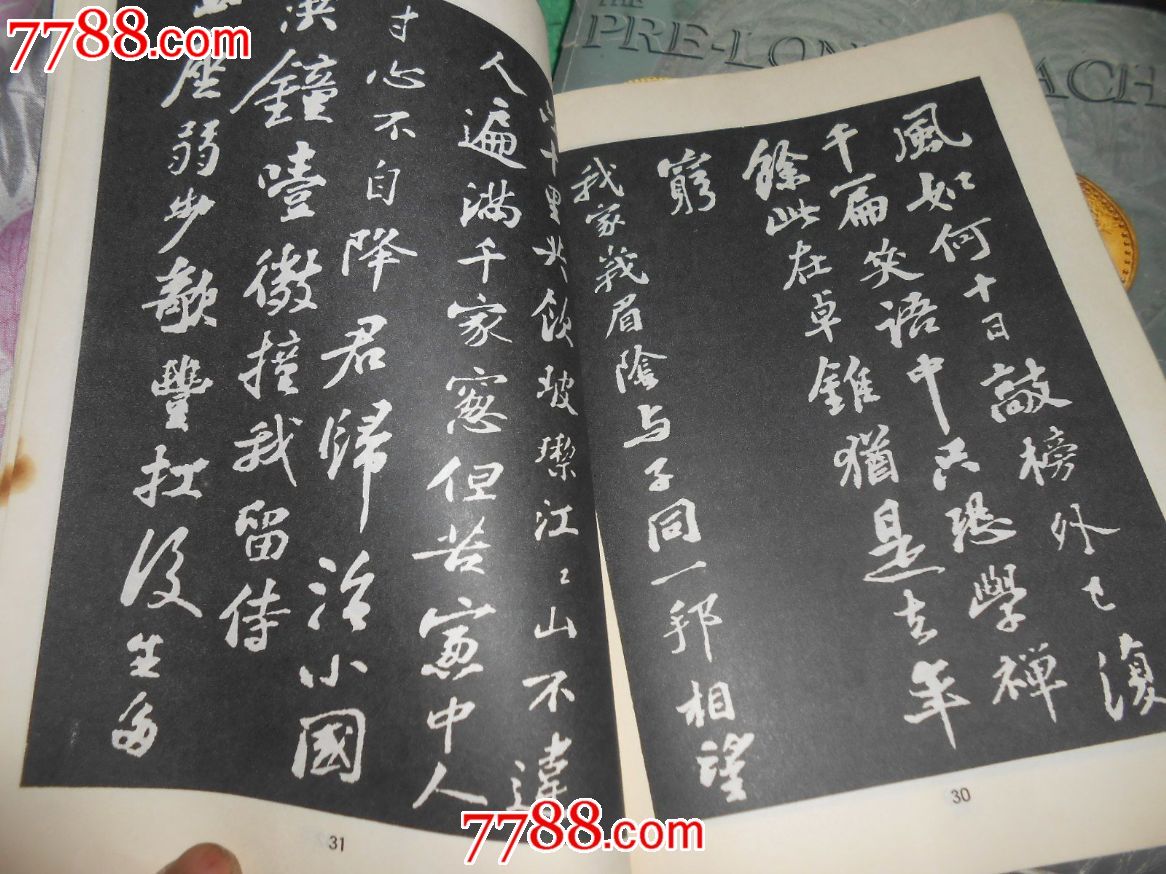 7788.com
7788.com
7788.com
7788.com
THE
PRE-LON
ACH
風如何十日敲榜外已復
千篇笑語中只恐學禪
餘此在卓錐猶是去年
窮
我家峩眉陰与子同一邦相望
30
十里共飲玻瓈江〻山不違
人遍滿千家窓但苦窓中人
寸心不自降君歸治小國
洪鐘噎微撞我留侍
座弱步欹豐扛後生多
31